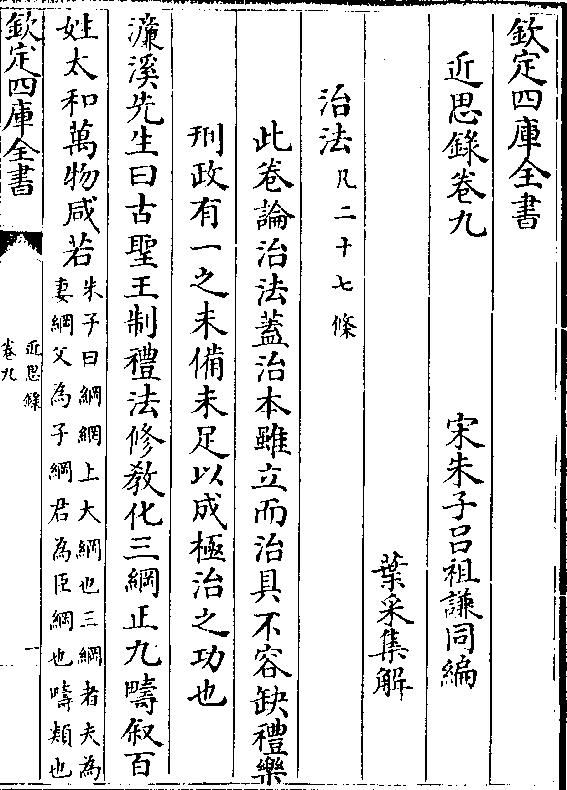 欽定四庫全書
近思錄卷九
宋朱子呂祖謙同編
葉采集解
治法凡二十七條
此卷論治法蓋治本雖立而治具不容缺禮樂
刑政有一之未備未足以成極治之功也
濂溪先生曰古聖王制禮法修教化三綱正九疇叙百
姓太和萬物咸若
朱子曰綱網上大綱也三綱者夫為
妻綱父為子綱君為臣綱也疇類也
欽定四庫全書
近思錄
卷九
一